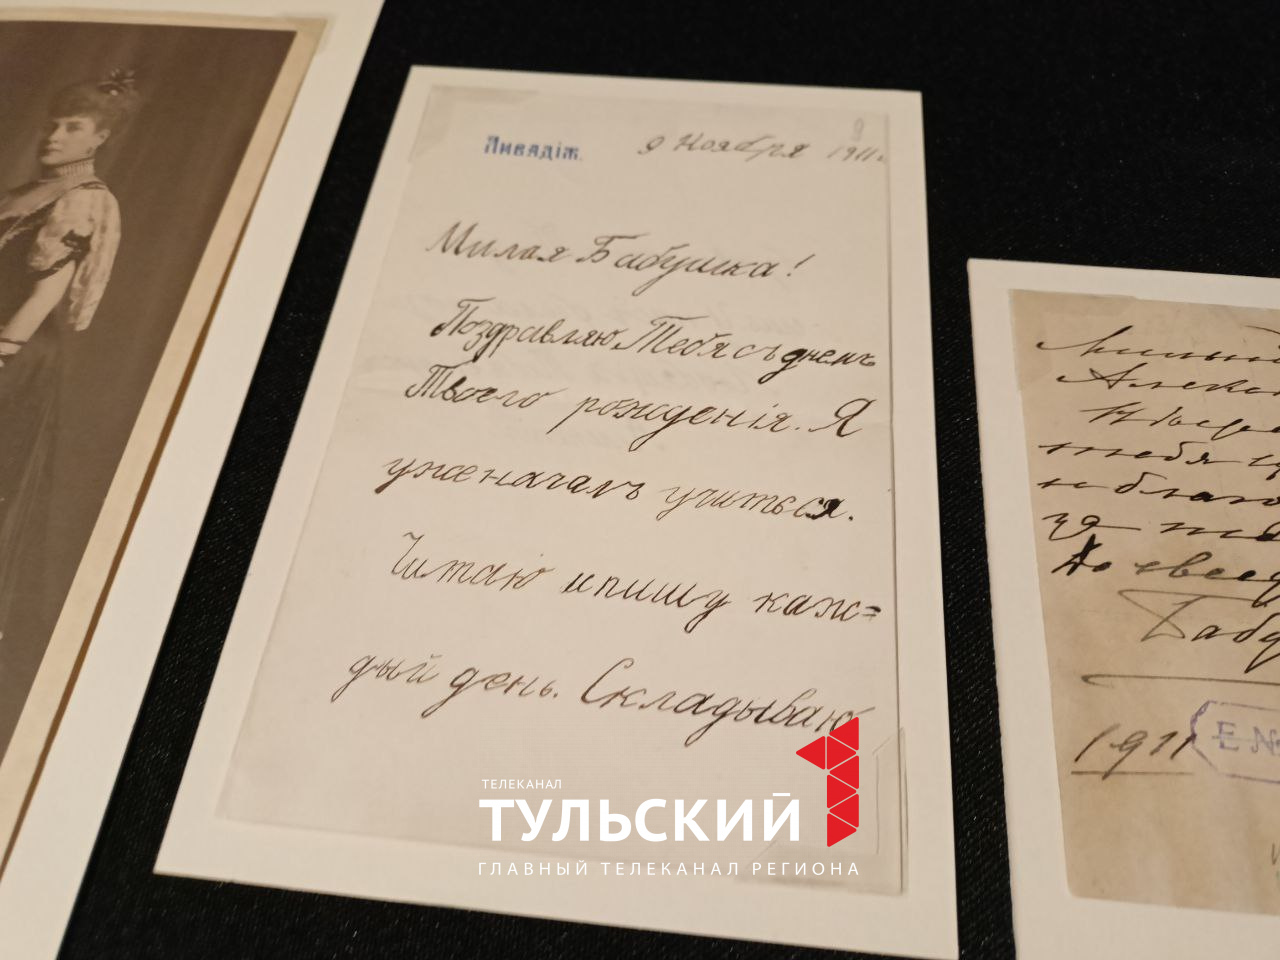 Ливадія.
9 Ноября 1911 г.
Милая Бабушка!
Поздравляю Тебя съ днемъ
Твоего рожденія. Я
уже началъ учиться.
Читаю и пишу каж=
дый день. Складываю
Милый
Алекс
тебя
и благо
за
До свед
Баб
1911
E №
ТЕЛЕКАНАЛ
ТУЛЬСКИЙ
ГЛАВНЫЙ ТЕЛЕКАНАЛ РЕГИОНА